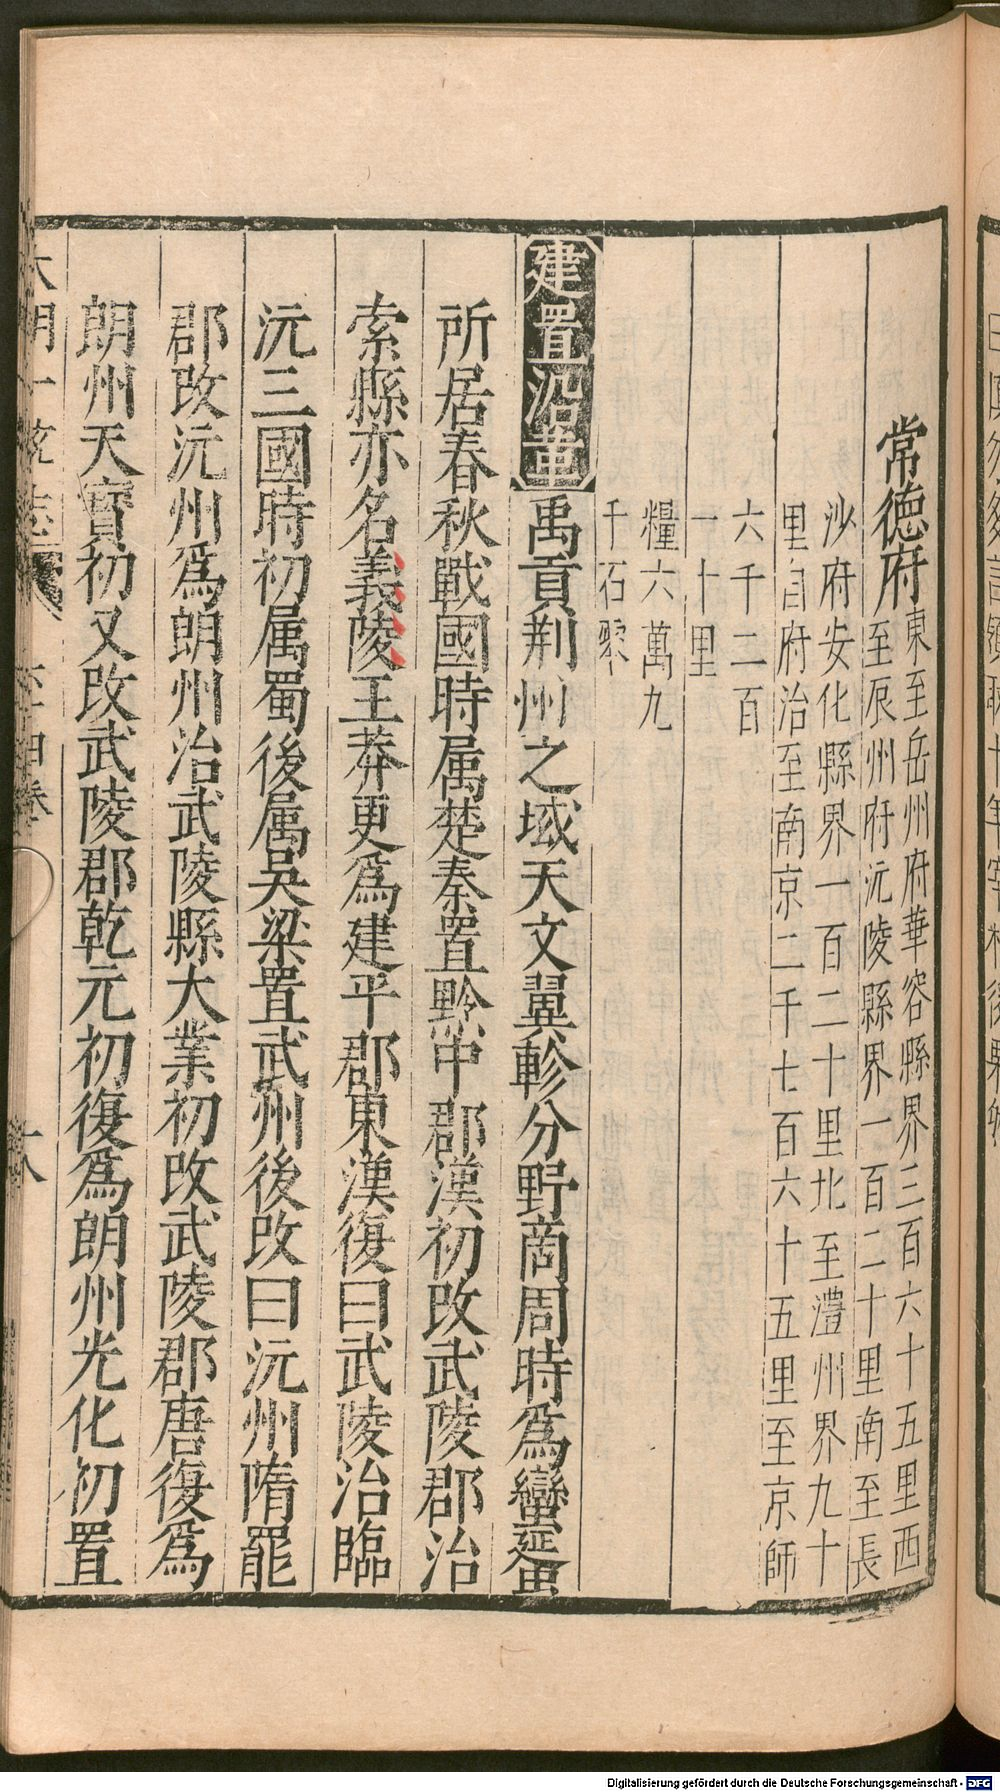 常德府東至岳州府華容縣界三百六十五里西
至辰州府沅陵縣界一百二十里南至長
沙府安化縣界一百二十里北至澧州界九十
里自府治至南京二千七百六十五里至京師
六千二百
一十里
糧六萬九
千石零
建置沿革禹貢荆州之域天文翼軫分野商周時爲蠻蜑
所居春秋戰國時属楚秦置黔中郡漢初改武陵郡治
索縣亦名義陵王莽更爲建平郡東漢復曰武陵治臨
沅三國時初属蜀後属吴梁置武州後改曰沅州隋罷
郡改沅州爲朗州治武陵縣大業初改武陵郡唐復爲
朗州天寳初又改武陵郡乾元初復爲朗州光化初置
大明一統志
六十四卷
十八
Digitalisierung gefördert durch die Deutsche Forschungsgemeinschaft - DFG